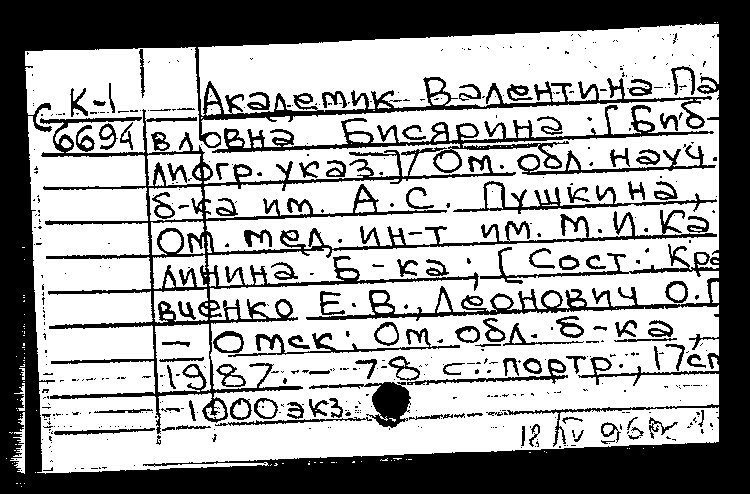 К-1 Академик Валентина Па
С 6694 вловна Бисярина : [ Биб-
лиогр. указ.] / Ом. обл. науч.
б-ка им. А. С. Пушкина,
Ом. мед. ин-т им. М. И. Ка
линина. Б-ка ; [ Сост.: Кра
вченко Е. В., Леонович О. П
– Омск : Ом. обл. б-ка ,
1987. – 78 с. : портр. ; 17 см
– 1000 экз.
18